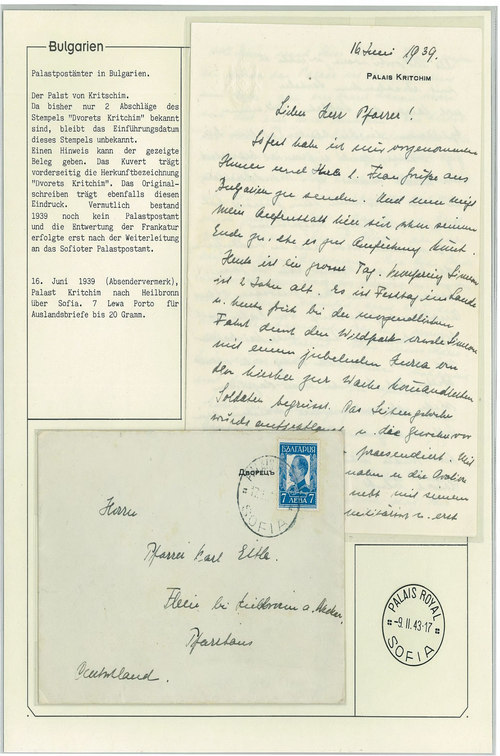 Bulgarien
Palastpostämter in Bulgarien.
Der Palst von Kritschim.
Da bisher nur 2 Abschläge des
Stempels "Dvorets Kritchim" bekannt
sind, bleibt das Einführungsdatum
dieses Stempels unbekannt.
Einen Hinweis kann der gezeigte
Beleg geben. Das Kuvert trägt
vorderseitig die Herkunftbezeichnung
"Dvorets Kritchim". Das Original-
schreiben trägt ebenfalls diesen
Eindruck. Vermutlich bestand
1939 noch kein Palastpostamt
und die Entwertung der Frankatur
erfolgte erst nach der Weiterleitung
an das Sofioter Palastpostamt.
16. Juni 1939 (Absendervermerk),
Palast Kritchim nach Heilbronn
über Sofia. 7 Lewa Porto für
Auslandsbriefe bis 20 Gramm.
16 Juni 1939.
PALAIS KRITCHIM
Lieber Herr Pfarrer!
Sofort habe ich mir vorgenommen
und l. Frau Grüße aus
Bulgarien zu senden. Und nun neigt
mein Aufenthalt hier sich schon seinem
Ende zu, ehe es zur
Heute ist ein grosser Tag. Simeon
ist 2 Jahre alt. Es ist Festtag im Lande
u. heute früh bei der morgendlichen
Fahrt durch den Wildpark wurde Simeon
mit einem jubelnden Hurra von
den hierher zur Wache
Soldaten begrüsst. Das
wurde u. die Gewehre vor
praesendiert. Mit
u. die
mit seinem
u. erst
Дворецъ
БЪЛГАРИЯ
7 ЛЕВА 7
SOFIA
Herrn
Pfarrer Karl
Flein bei Heilbronn a. Neckar.
Pfarrhaus
Deutschland.
PALAIS ROYAL
-9.II.43-17
SOFIA